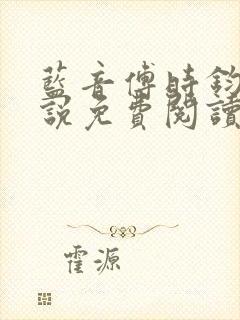 藍音傅時鈞
說免費閱讀
霍源